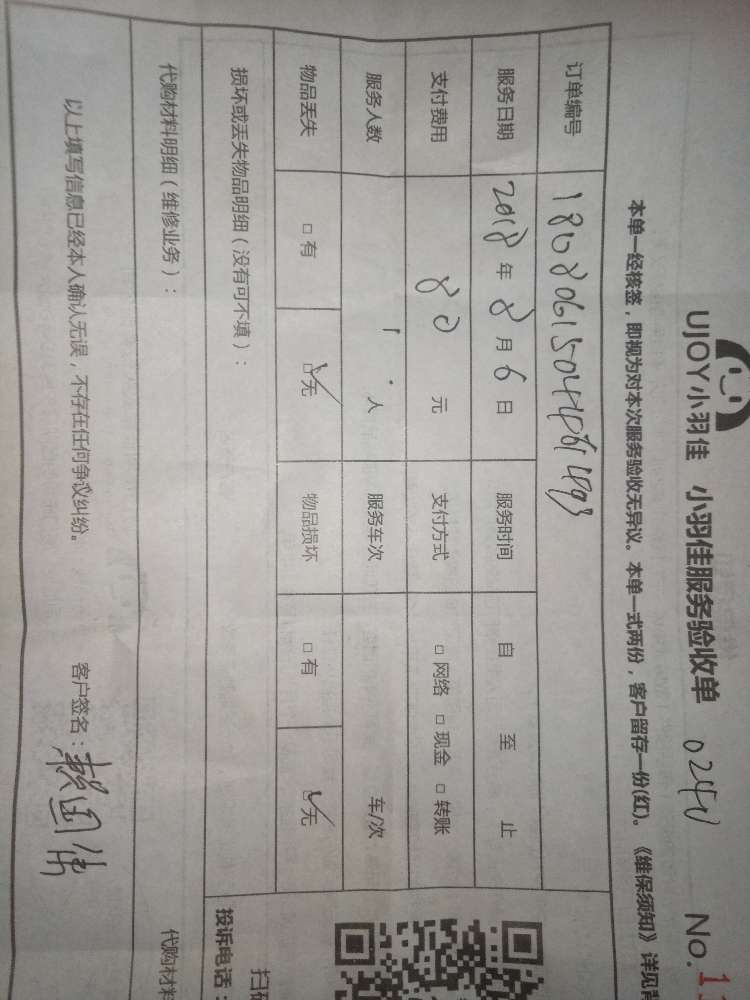 UJOY小羽佳 小羽佳服务验收单 0240 No.1
本单一经核签，即视为对本次服务验收无异议。本单一式两份，客户留存一份(红)。《维保须知》详见背
订单编号
服务日期 2018 年 8 月 6 日 服务时间 自 至 止
支付费用 80 元 支付方式 □ 网络 □ 现金 □ 转账
服务人数 1 人 服务车次 车/次
物品丢失 □ 有 ☑ 无 物品损坏 □ 有 ☑ 无
损坏或丢失物品明细（没有可不填）：
扫
投诉电话：
代购材料明细（维修业务）： 代购材料
以上填写信息已经本人确认无误，不存在任何争议纠纷。 客户签名：赖国伟